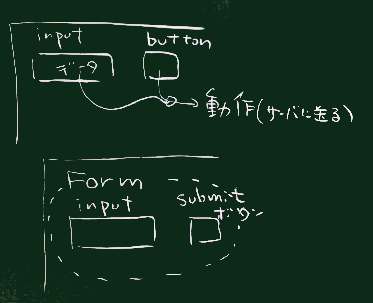 input button
データ
動作(サーバに送る)
Form
input submit
ボタン